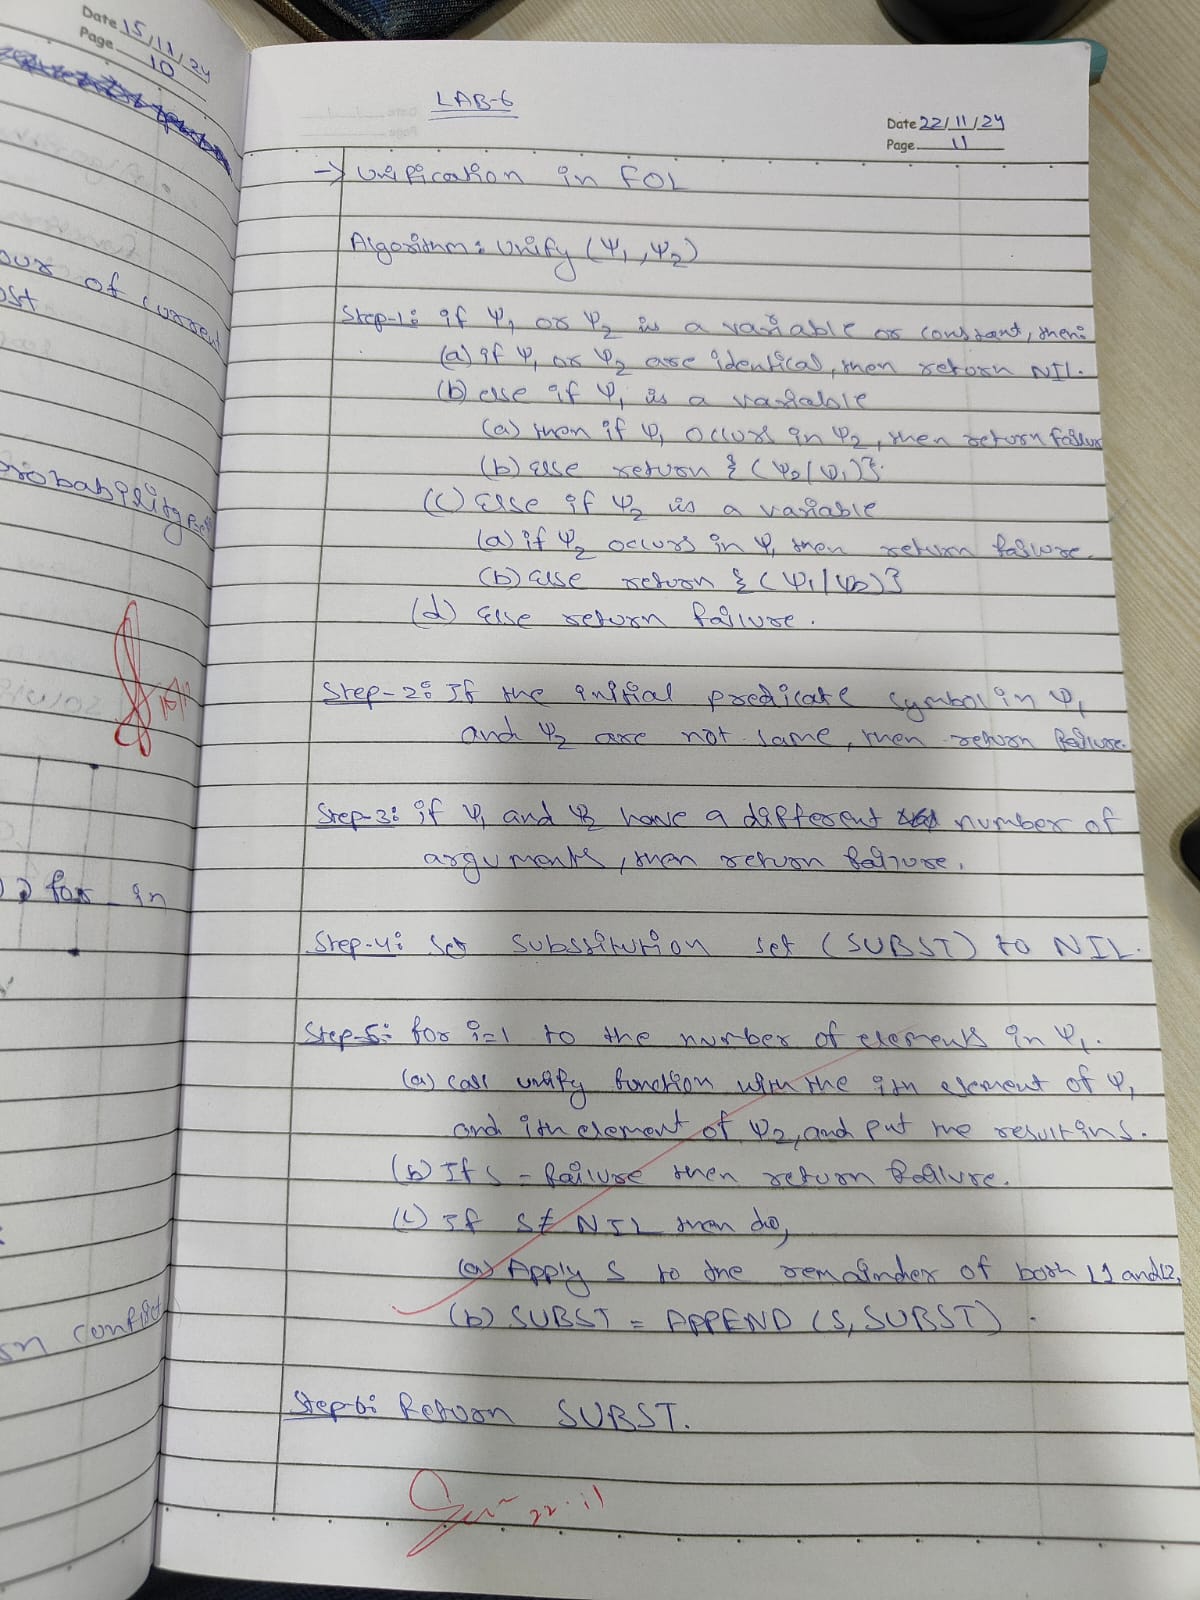 Date 15/11/24
Page 10
our of current
ost
for in
LAB-6
Date 22/11/24
Page 11
→ Unification in FOL
Algorithm: Unify (Ψ1, Ψ2)
Step-1: if Ψ1 or Ψ2 is a variable or constant, then:
(a) if Ψ1 or Ψ2 are identical, then return NIL.
(b) else if Ψ1 is a variable
(a) then if Ψ1 occurs in Ψ2, then return failur
(b) else return {(Ψ2/Ψ1)}.
(c) Else if Ψ2 is a variable
(a) if Ψ2 occurs in Ψ1 then return failure.
(b) Else return {(Ψ1/Ψ2)}
(d) Else return failure.
Step-2: If the initial predicate symbol in Ψ1
and Ψ2 are not same, then return failure.
Step-3: if Ψ1 and Ψ2 have a different number of
arguments, then return failure.
Step-4: Set Substitution set (SUBST) to NIL.
Step-5: for i=1 to the number of elements in Ψ1.
(a) call unify function with the ith element of Ψ1
and ith element of Ψ2, and put the result in S.
(b) If S = failure then return failure.
(c) If S ≠ NIL then do,
(a) Apply S to the remainder of both L1 and L2.
(b) SUBST = APPEND (S, SUBST).
Step-6: Return SUBST.
22.11